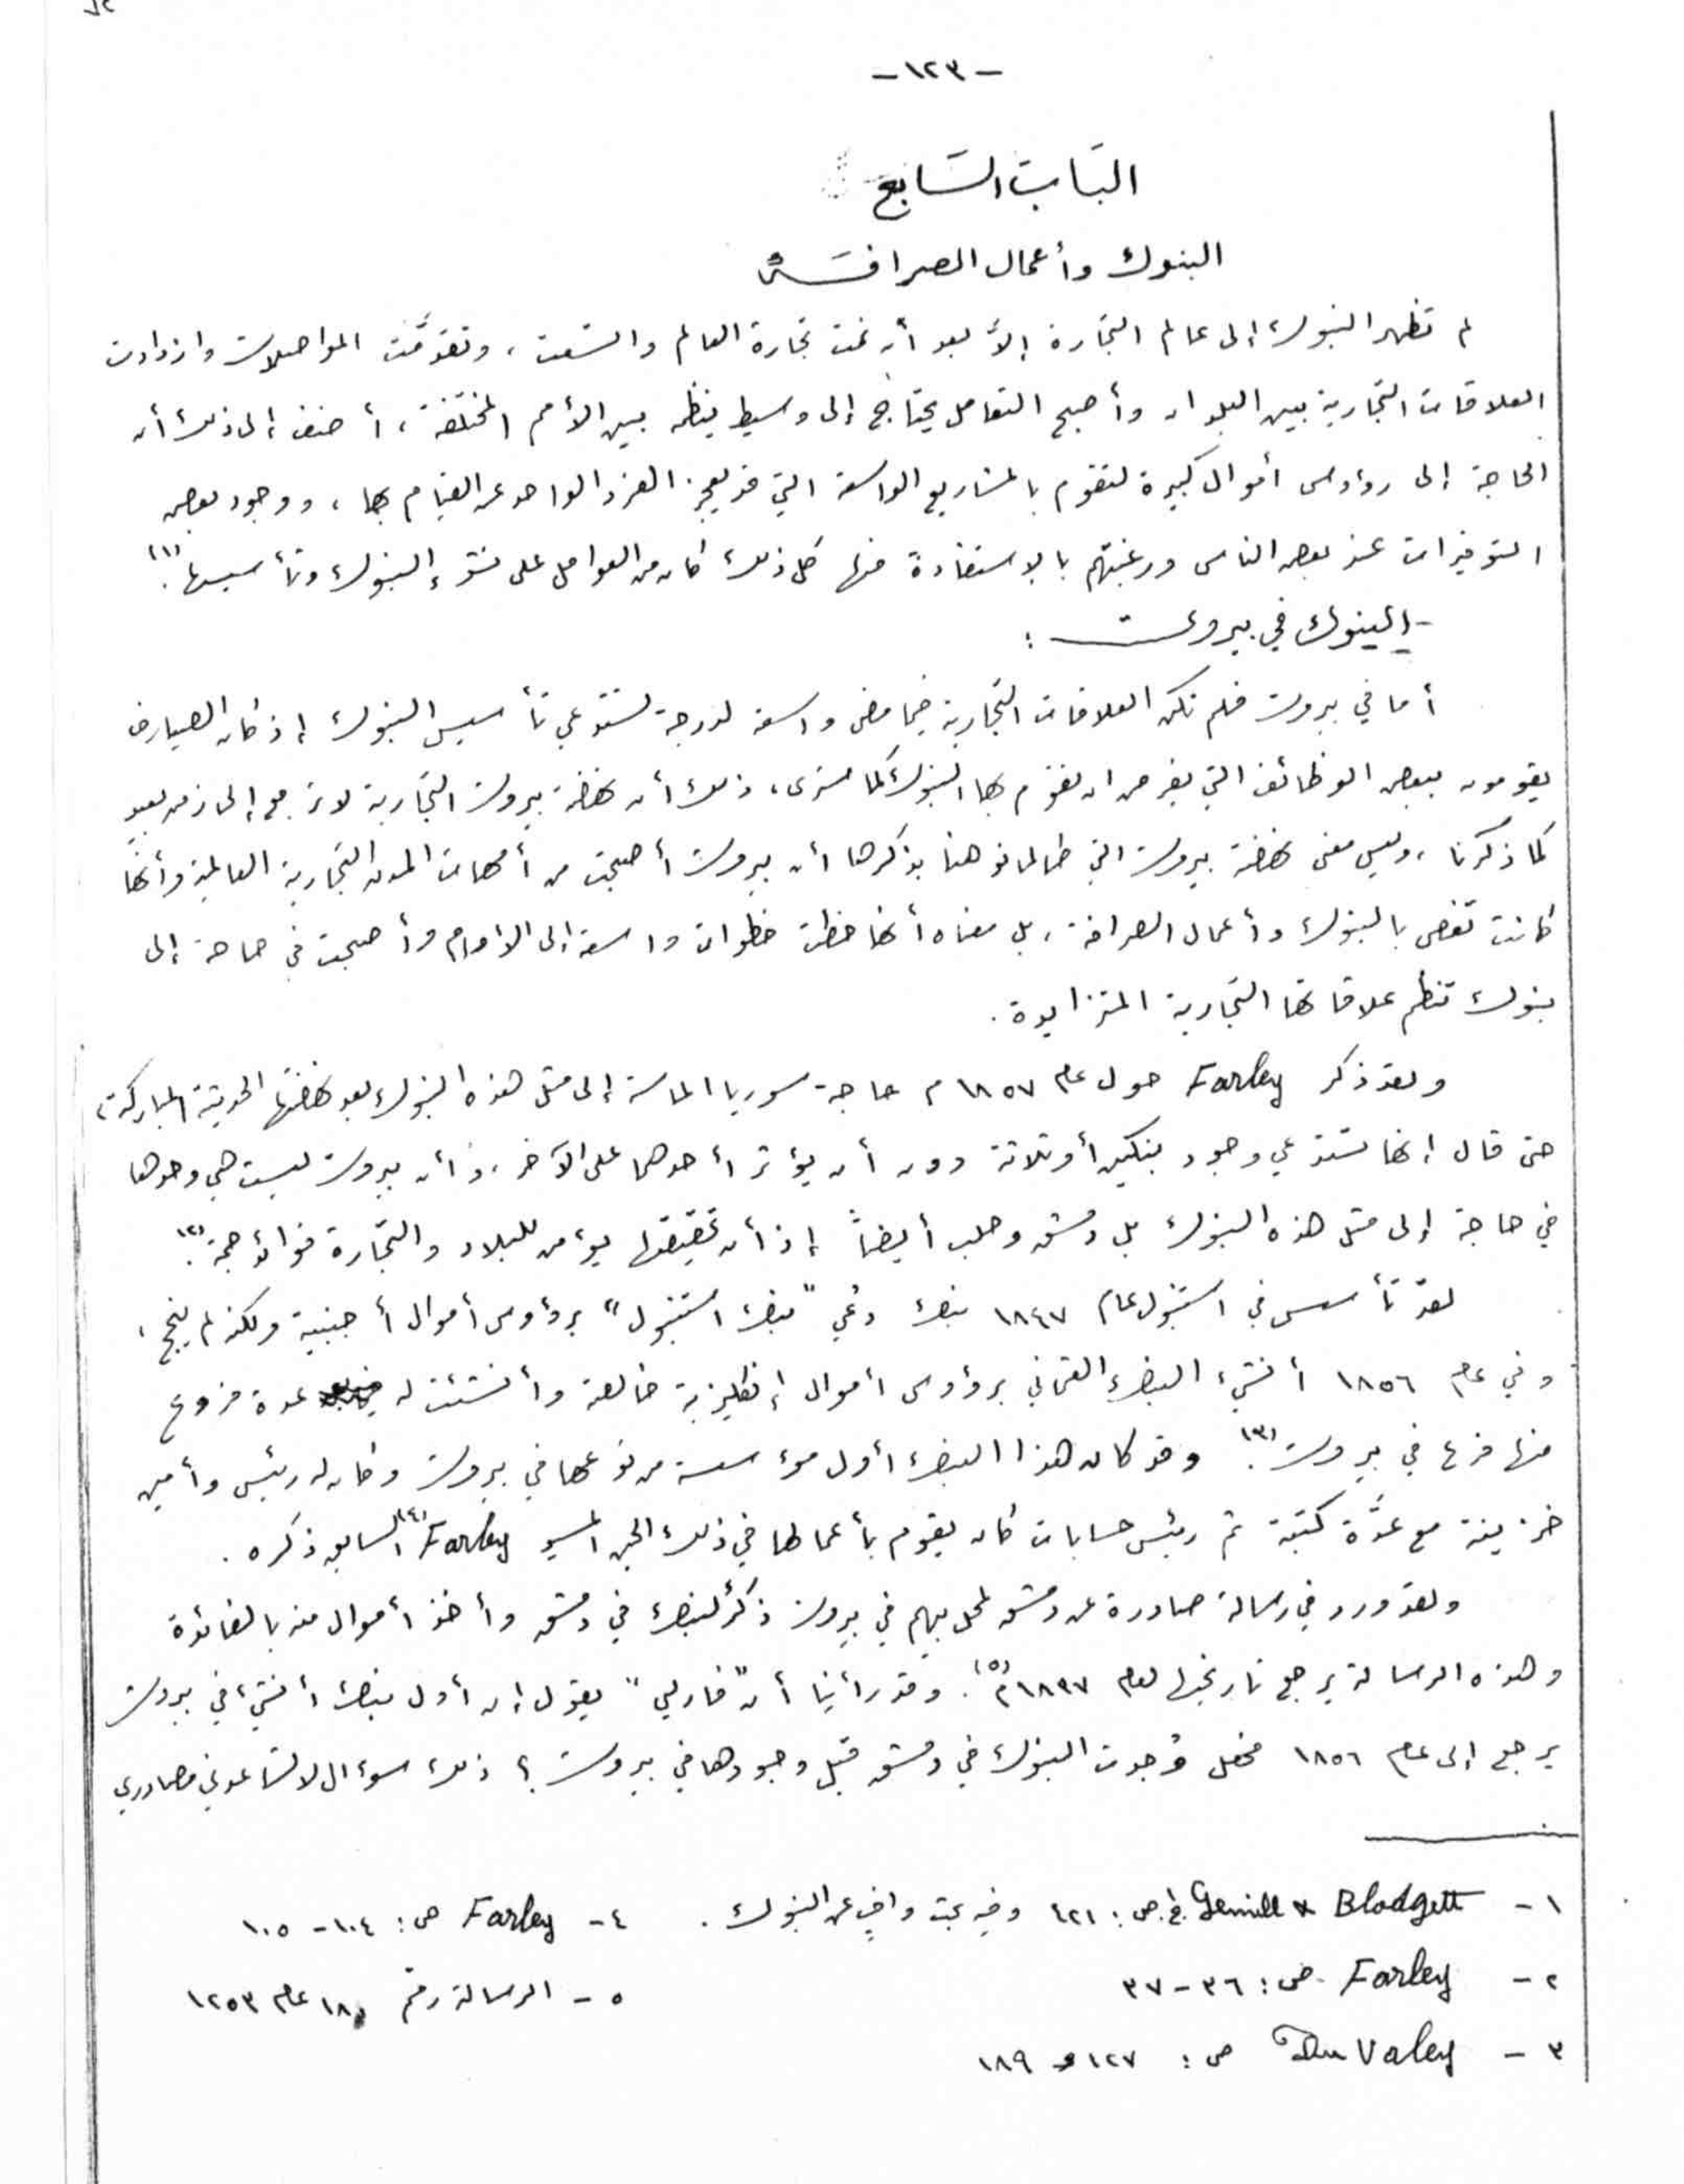 -١٢٣-
الباب السابع
البنوك وأعمال الصرافة
لم تظهر البنوك إلى عالم التجارة إلاّ بعد أن نمت تجارة العالم واتسعت، وتقدمّت المواصلات وازدادت
العلاقات التجارية بين البلدان وأصبح التعامل يحتاج إلى وسيط ينظمه بين الأمم المختلفة، أضف إلى ذلك أن
الحاجة إلى رؤوس أموال كبيرة لتقوم بالمشاريع الواسعة التي قد يعجز الفرد الواحد عن القيام بها، ووجود بعض
التوفيرات عند بعض الناس ورغبتهم بالاستفادة منها كل ذلك كان من العوامل على نشوء البنوك وتأسيسها (١).
- البنوك في بيروت :
أما في بيروت فلم تكن العلاقات التجارية فيما مضى واسعة لدرجة تستدعي تأسيس البنوك إذ كان الصيارف
يقومون ببعض الوظائف التي يفرض ان تقوم بها البنوك كما سنرى، ذلك أن نهضة بيروت التجارية لا ترجع إلى زمن بعيدٍ
كما ذكرنا، وليس معنى نهضة بيروت التي طالما نوهنا بذكرها أن بيروت أصبحت من أمهات المدن التجارية العالمية وأنها
كانت تغص بالبنوك وأعمال الصرافة، بل معناه أنها خطت خطوات واسعة إلى الامام وأصبحت في حاجة إلى
بنوك تنظم علاقاتها التجارية المتزايدة.
ولقد ذكر Farley حول عام ١٨٥٧ م حاجة سوريا الماسة إلى مثل هذه البنوك بعد نهضتها الحديثة المباركة،
حتى قال إنها تستدعي وجود بنكين أو ثلاثة دون أن يؤثر أحدهما على الآخر، وأن بيروت ليست هي وحدها
في حاجة إلى مثل هذه البنوك بل دمشق وحلب أيضاً إذ أن تحقيقها يؤمن للبلاد والتجارة فوائد جمة (٢).
لقد تأسس في استنبول عام ١٨٤٧ بنك دُعي "بنك استنبول" برؤوس أموال أجنبية ولكنه لم ينجح،
وفي عام ١٨٥٦ أنشىء البنك العثماني برؤوس اموال إنكليزية خالصة وأنشئت له عدة فروع
منها فرع في بيروت (٣). وقد كان هذا البنك أول مؤسسة من نوعها في بيروت وكان له رئيس وأمين
خزينة مع عدَّة كتبة ثم رئيس حسابات كان يقوم بأعمالها في ذلك الحين المسيو Farley (٤) السابق ذكره.
ولقد ورد في رسالة صادرة عن دمشق لمحل بيهم في بيروت ذكرٌ لبنك في دمشق وأخذ أموال منه بالفائدة
وهذه الرسالة يرجع تاريخها لعام ١٨٩٧م (٥). وقد رأينا أن "فارلي" يقول إن أول بنك أنشىء في بيروت
يرجع إلى عام ١٨٥٦ فهل وُجدت البنوك في دمشق قبل وجودها في بيروت؟ ذلك سؤال لا تساعدني مصادري
١ - Gemill & Blodgett ج١ ص: ٤٢١ وفيه بحث وافٍ عن البنوك.
٢ - Farley ص: ٣٦-٣٧
٣ - Du Valey ص: ١٢٧ و ١٨٩
٤ - Farley ص: ١٠٤-١٠٥
٥ - الرسالة رقم ١٨٠ عام ١٢٥٣